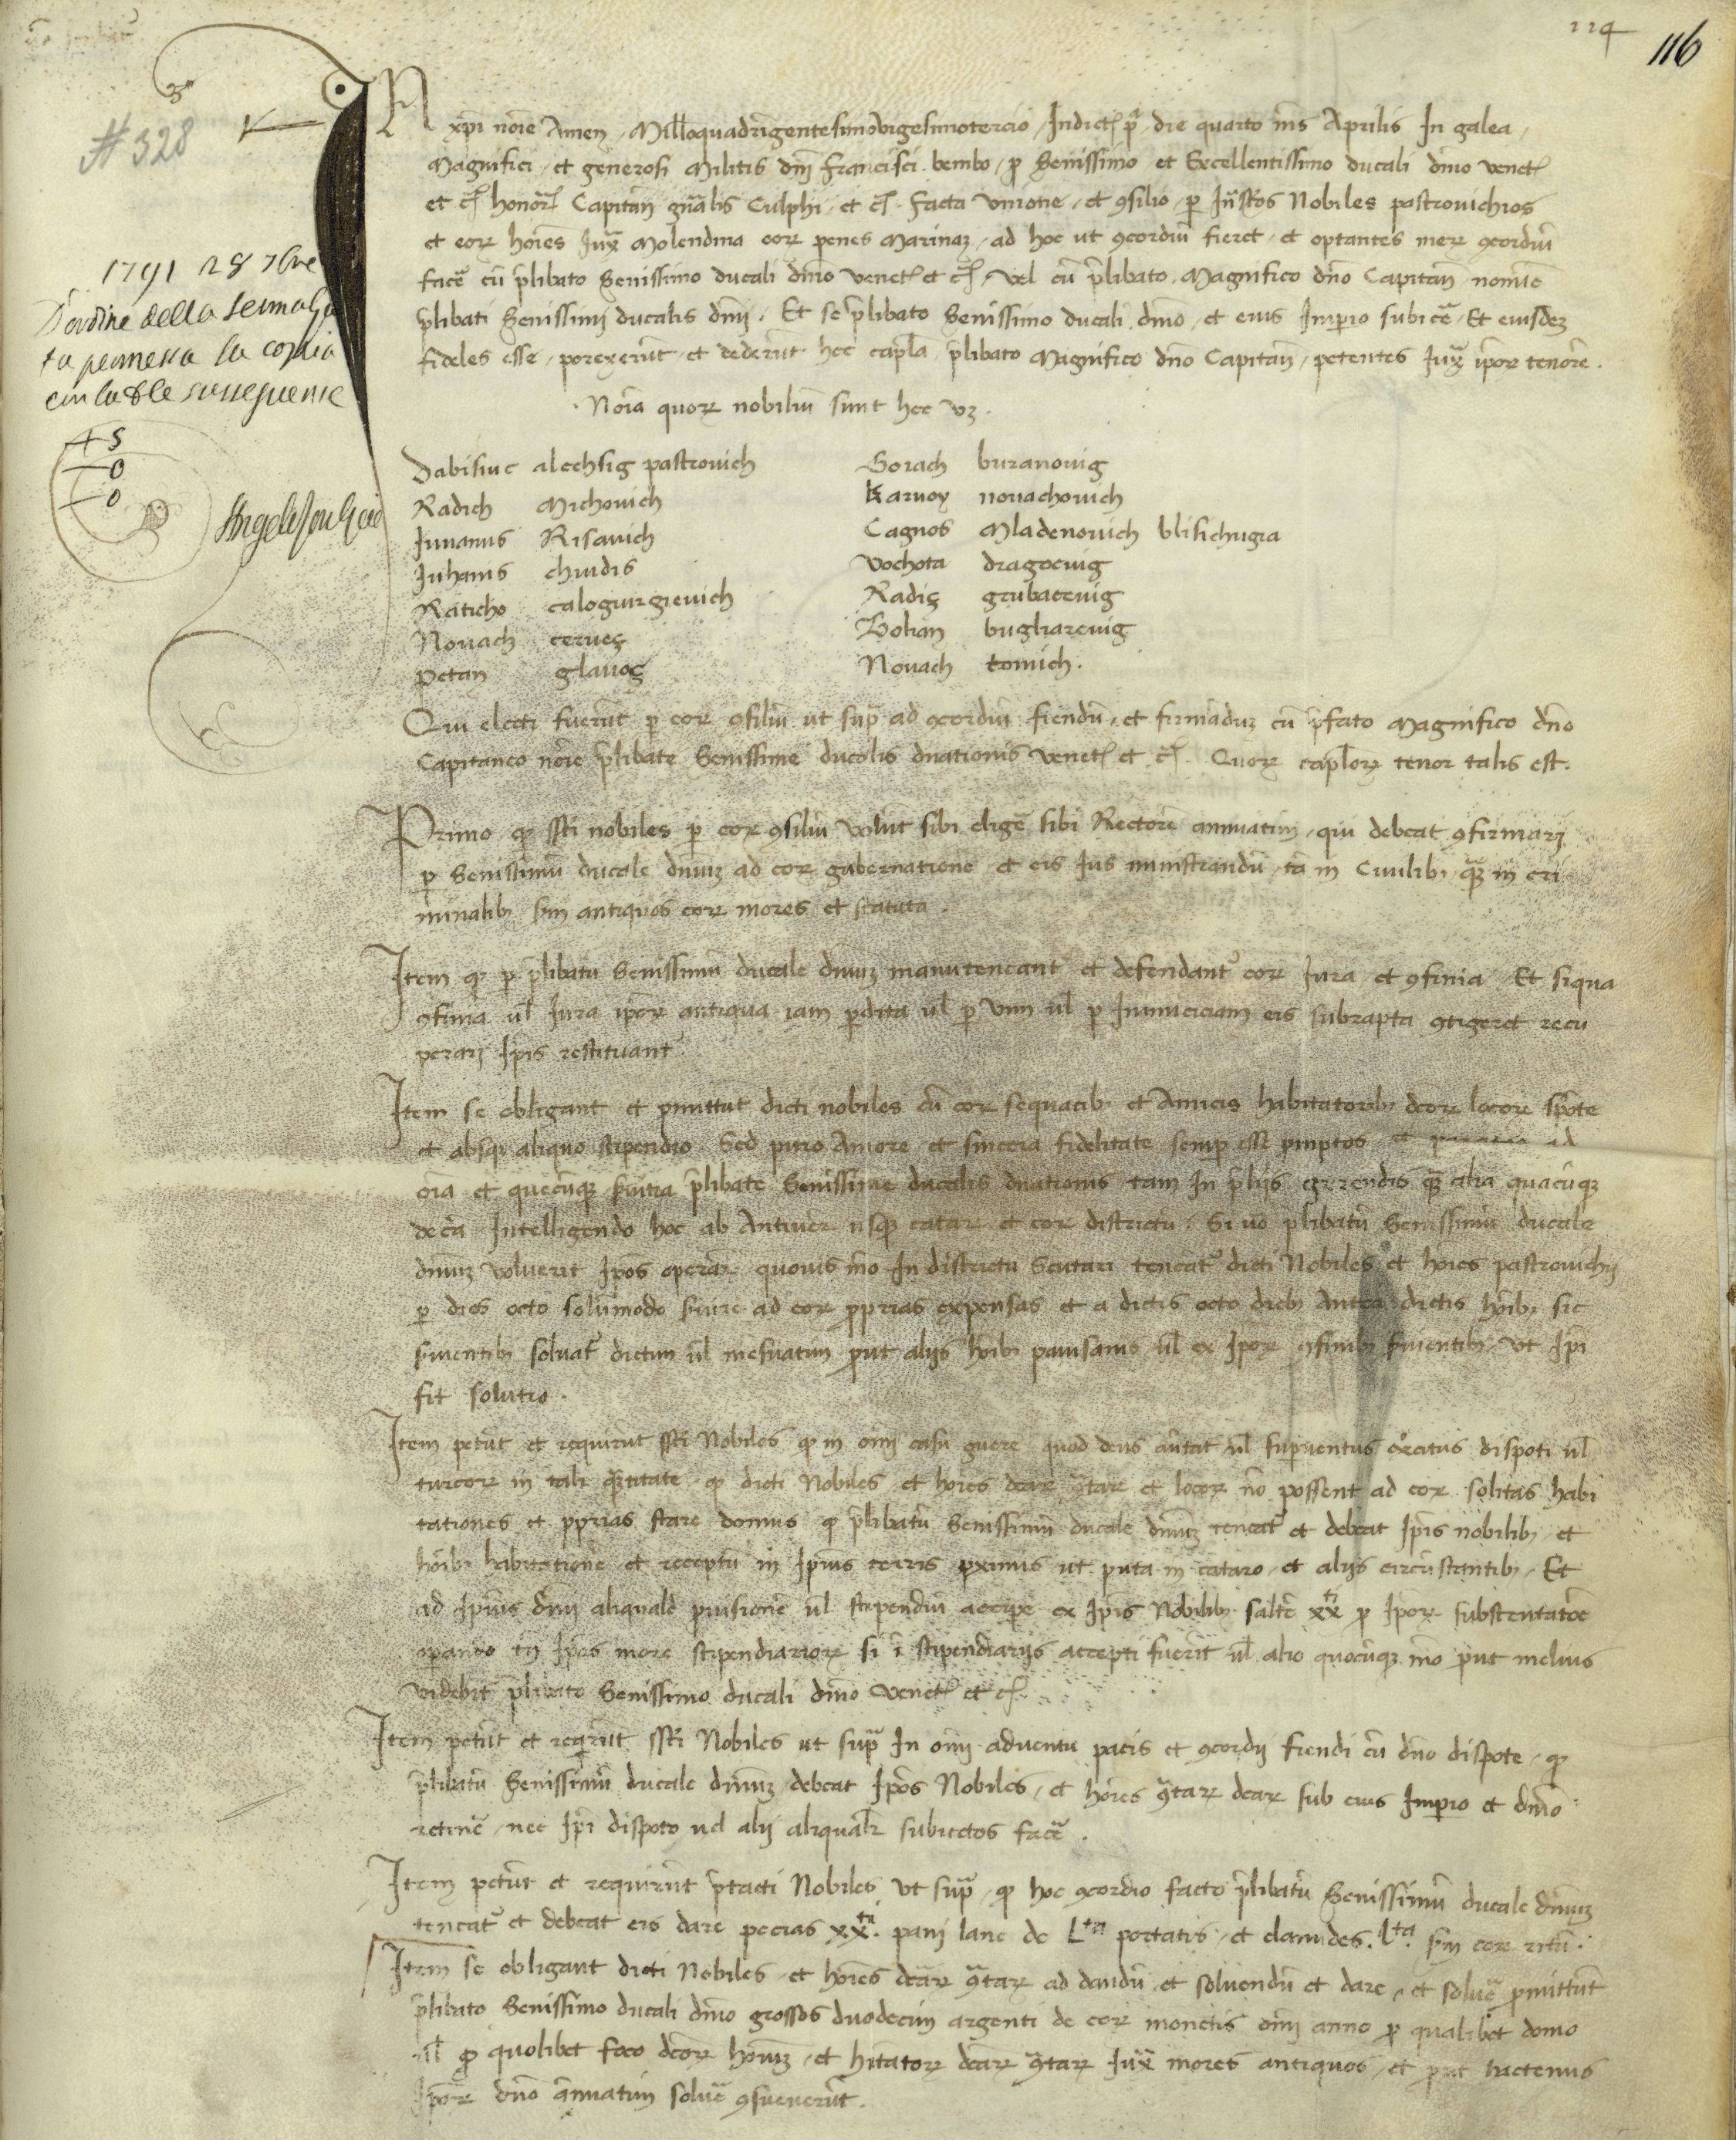 114
116
# 328
IN xpi noie Amen. Milloquadrigentesimovigesimotercio, Indict. p̃, die quarto ms Aprilis In galea,
Magnifici, et generosi Militis dnj francisci bembo, p Senissimo et Excellentissimo ducali dmo venet.
et c. honor. Capitan gnalis Culphi, et c. facta Unione, et 9silio, p Infrstos Nobiles pastrovichios
et eor hoies Juxa Molendina eor penes Marinaz, ad hoc ut 9cordiu fieret, et optantes mer 9cordiu
face cu plibato Senissimo ducali dmo venet. et c. Vel cu plibato Magnifico dno Capitan nomie
plibati Senissimj ducalis dmj. Et se plibato Senissimo ducali dmo, et eius Imperio subice, Et eiusdez
fideles esse, porexerut, et dederut hec capla plibato Magnifico dno Capitan, petentes Juxa ipor tenore.
Noia quor nobiliu sunt hec vz.
1791 28 7bre
D'ordine della Serma Sig
ta permessa la copia
Dabisiuc alechsig pastrovich
Radich Michovich
Iuuanus Risavich
Iuhanis chiudis
Raticho calogiurgievich
Novach cerueç
petan glavoç
Borach buranovig
Karvoy novachovich
Cagnos Mladenovich blisichugra
Vochota dragoevig
Radiç grubacevig
Bolian bugliarevig
Novach tomich.
Qui electi fuerut p eor 9siliu ut sup ad 9cordiu fiendu, et firmaduz cu pfato Magnifico dno
Capitaneo noie plibate Senissime ducalis dnationis venet. et c. Quor caplor tenor talis est.
Primo q ssti nobiles p eor 9siliu volut sibi elige sibi Rectore annuatim, qui debeat 9firmarj
p Senissimu ducale dmuz ad eor gubernatione, et eis Jus ministrandu, ta in Civilib, qz in cri
minalib sm antiquos eor mores et statuta.
Item q p plibatu Senissimu ducale dmuz manuteneant et defendant eor Jura et 9finia. Et siqua
9finia ul Jura ipor antiqua iam pdita ul p vim ul p Inimiciciam eis subrapta 9tigeret recu
perarj Ipis restituant.
Item se obligant et pmittut dicti nobiles cu eor sequacib et Amicis habitatorib dcor locor spote
et absq aliquo stipendio. Sed puro Amore et sincera fidelitate semp esse pmptos et ad
oia et quecuqz svitia plibate Senissime ducalis dnationis tam In plijs gerendis qz alia quacuqz
de ca Intelligendo hoc ab Antivar usqz catar et eor districtu. Si vo plibatu Senissimu ducale
dmuz voluerit Ipos operar quovis mo In districtu Scutari teneat dicti Nobiles et hoies pastrovichij
p dies octo solumodo svire ad eor pprias expensas et a dictis octo dieb Antea dictis hoib sic
svientib solvat dictim ul mesuatim put alijs hoib paisanis ul ex Ipor 9finib svientib, ut Ipi
fit solutio.
Item petut et requirut ssti Nobiles q in oim casu guere quod deus avtat ul supventus exercitus dispoti ul
turcor in tali qztitate q dicti Nobiles et hoies dcar 9tar et locor no possent ad eor solitas habi
tationes et pprias stare domus q plibatu Senissimu ducale dmuz teneat et debeat Ipis nobilib, et
hoib habitatione et receptu in Ipius terris pximis ut puta in cataro, et alijs circustantib. Et
ad Ipius dmj aliquale pvisione ul stipendiu accipe ex Ipis Nobilib salte xxti p Ipor substentatoe
operando tn Ipos more stipendiarior si i stipendiarijs accepti fuerit ul alio quocuqz mo put melius
videbit plibato Senissimo ducali dmo venet. et c.
Item petut et requirut ssti Nobiles ut sup In oim adventu pacis et 9cordij fiendi cu dno dispote, q
plibatu Senissimu ducale dmuz debeat Ipos Nobiles, et hoies 9tar dcar sub eius Imperio et dmo
retine, nec Ipi dispoto vel alij aliqualr subiectos face.
Item petut et requirut ptacti Nobiles, ut sup, q hoc 9cordio facto plibatu Senissimu ducale dmuz
teneat et debeat eis dare pecias xxti. panj lane de Lta portatis, et clamides. Lta sm eor ritu.
Item se obligant dicti Nobiles, et hoies dcar 9tar ad dandu et solvendu et dare, et solve pmittut
plibato Senissimo ducali dmo grossos duodecim argenti de eor monetis oim anno p qualibet domo
ul p quolibet foco dcor homuz, et hitator dcar 9tar Juxa mores antiquos, et put hactenus
Ipor dno annuatim solve 9sueverut.